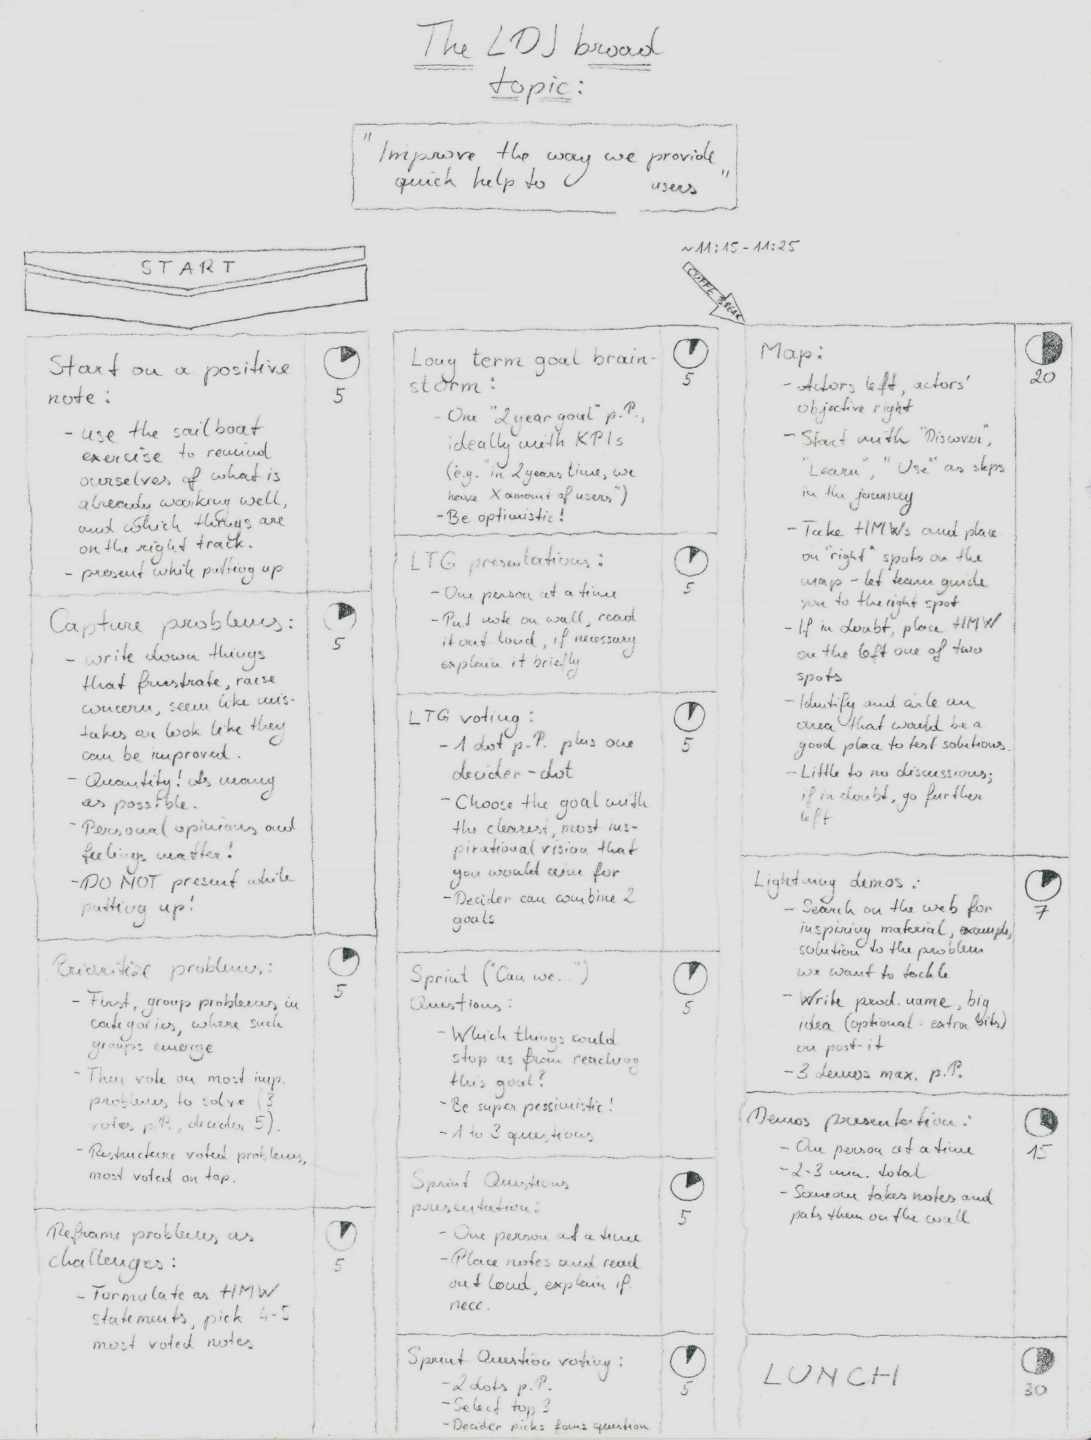 The LDJ broad
topic:
"Improve the way we provide
quick help to users"
START
Start on a positive
note:
5
- use the sailboat
exercise to remind
ourselves of what is
already working well,
and which things are
on the right track.
- present while putting up
Capture problems:
5
- write down things
that frustrate, raise
concern, seem like mis-
takes or look like they
can be improved.
- Quantity! As many
as possible.
- Personal opinions and
feelings matter!
- DO NOT present while
putting up!
Prioritise problems:
5
- First, group problems in
categories, where such
groups emerge
- Then vote on most imp.
problems to solve (3
votes p.P., decider 5).
- Restructure voted problems,
most voted on top.
Reframe problems as
challenges:
5
- Formulate as HMW
statements, pick 4-5
most voted notes
Long term goal brain-
storm:
5
- One "2 year goal" p.P.,
ideally with KPIs
(e.g. "in 2 years time, we
have X amount of users")
- Be optimistic!
LTG presentations:
5
- One person at a time
- Put note on wall, read
it out loud, if necessary
explain it briefly
LTG voting:
5
- 1 dot p.P. plus one
decider-dot
- Choose the goal with
the clearest, most ins-
pirational vision that
you would aim for
- Decider can combine 2
goals
Sprint ("Can we...")
Questions:
5
- Which things could
stop us from reaching
this goal?
- Be super pessimistic!
- 1 to 3 questions
Sprint Questions
presentation:
5
- One person at a time
- Place notes and read
out loud, explain if
nece.
Sprint Question voting:
5
- 2 dots p.P.
- Select top 3
- Decider picks question
~11:15-11:25
COFFEE BREAK
Map:
20
- Actors left, actors'
objective right
- Start with "Discover",
"Learn", "Use" as steps
in the journey
- Take HMWs and place
on "right" spots on the
map - let team guide
you to the right spot
- If in doubt, place HMW
on the left one of two
spots
- Identify and circle an
area that would be a
good place to test solutions.
- Little to no discussions;
if in doubt, go further
left
Lightning demos:
7
- Search on the web for
inspiring material, example,
solution to the problem
we want to tackle
- Write prod. name, big
idea (optional: extra bits)
on post-it
- 3 demos max. p.P.
Demos presentation:
15
- One person at a time
- 2-3 min. total
- Someone takes notes and
puts them on the wall
LUNCH
30